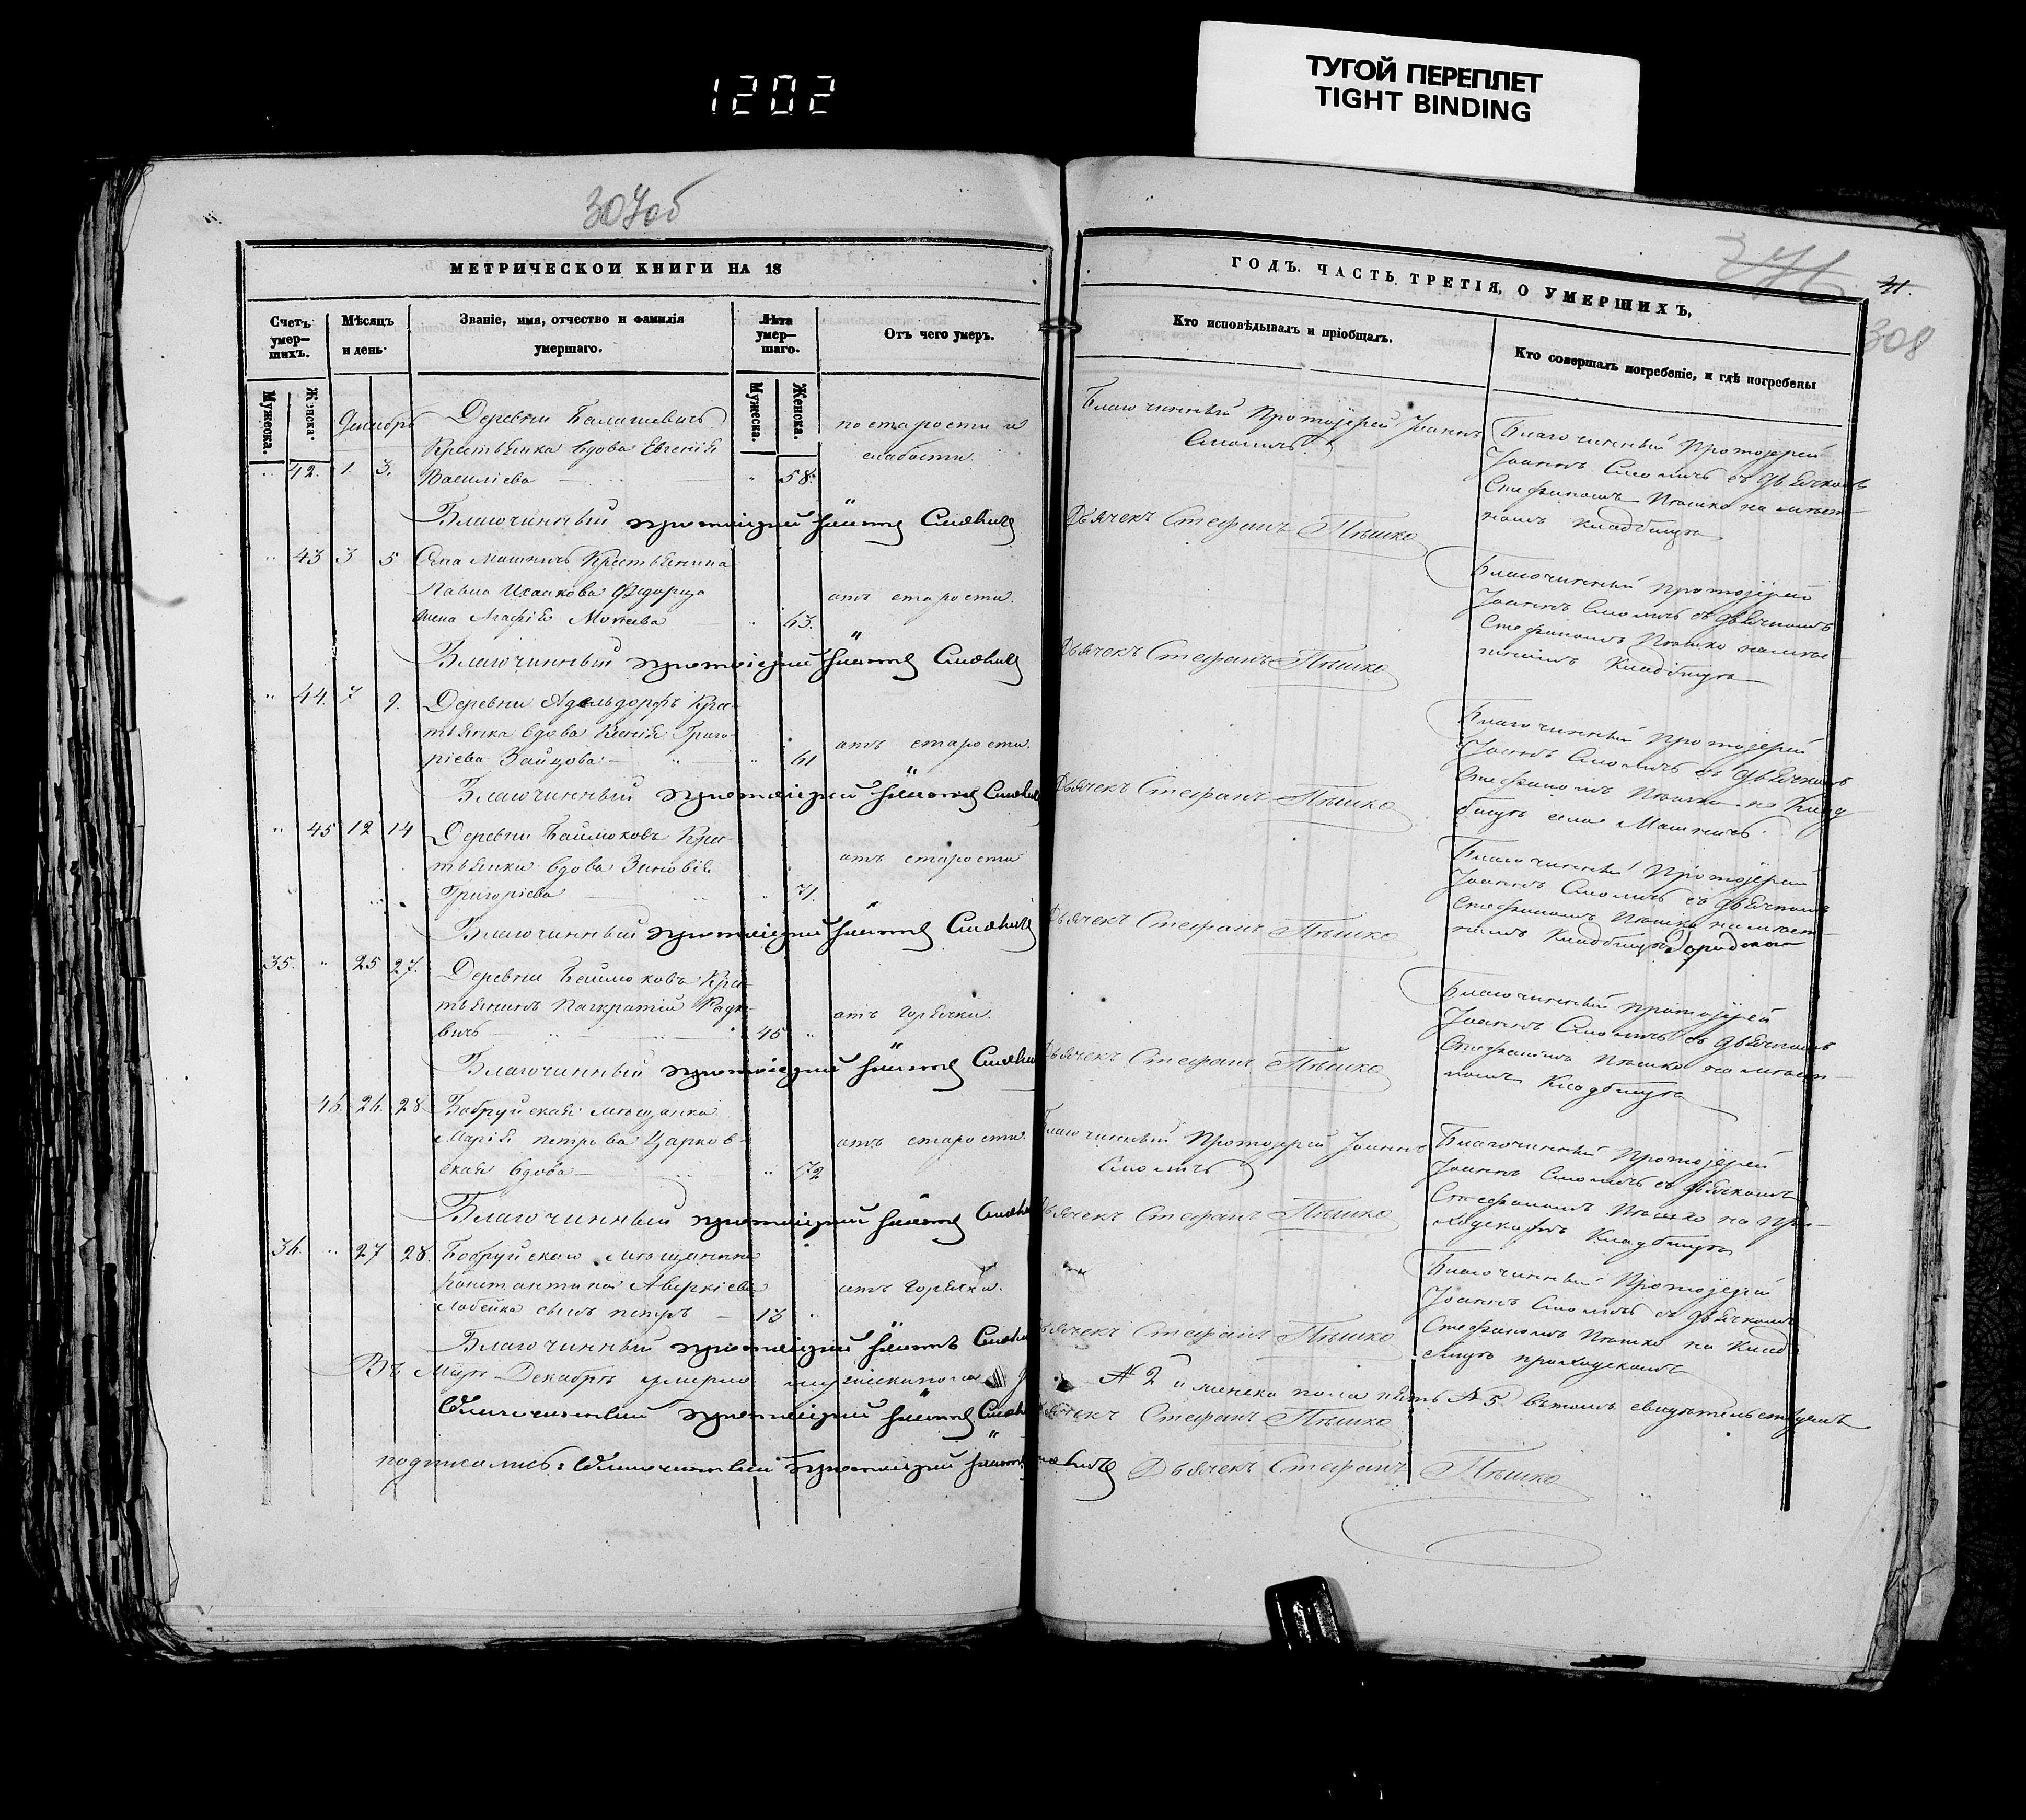 1202
ТУГОЙ ПЕРЕПЛЕТ
TIGHT BINDING
307об
МЕТРИЧЕСКОИ КНИГИ НА 18
Счетъ умер—шихъ.
Мѣсяцъ и день·
Званіе, имя, отчество и фамилія
умершаго.
Лѣта умер—шаго.
Отъ чего умеръ.
Мужеска.
Женска.
Мужеска.
Женска.
Декабрь
Деревни Балашевичъ
Крестьянка вдова Евгенія
42. 1. 3. Василіева 58.
по старости и
слабости.
Благочинный протоіерей Іоаннъ Смоличъ
43 3 5 Села Машничъ Крестьянина
Павла Исаакова Федорца
жена Агафія Мокіева 63.
отъ старости.
Благочинный протоіерей Іоаннъ Смоличъ
44. 7 9. Деревни Адельдорфъ Крес-
тьянка вдова Ксенія Григо-
ріева Зайцова 61
отъ старости.
Благочинный протоіерей Іоаннъ Смоличъ
45 12 14 Деревни Баимоковъ Крес-
тьянка вдова Зиновія
Григоріева 71.
отъ старости
Благочинный протоіерей Іоаннъ Смоличъ
35. 25 27. Деревни Баимоковъ Крес-
тьянинъ Панкратій Радке-
вичъ 45
отъ горячки.
Благочинный протоіерей Іоаннъ Смоличъ
46. 26. 28 Бобруйская мѣщанка
Марія Петрова Царков-
ская вдова 72
отъ старости.
Благочинный протоіерей Іоаннъ Смоличъ
36. 27 28. Бобруйскаго мѣщанина
Константина Аверкіева
Лобейка сынъ Петръ 13
отъ горячки.
Благочинный протоіерей Іоаннъ Смоличъ
Въ Мцѣ Декабрѣ умерло мужескаго пола
Благочинный протоіерей Іоаннъ Смоличъ
подписались: Благочинный протоіерей Іоаннъ Смоличъ
ГОДЪ. ЧАСТЬ ТРЕТІЯ, О УМЕРШИХЪ,
41.
308
Кто исповѣдывалъ и пріобщалъ.
Кто совершалъ погребеніе, и гдѣ погребены
Благочинный Протоіерей Іоаннъ
Смоличъ.
Благочинный Протоіерей
Іоаннъ Смоличъ съ дьячкомъ
Стефаномъ Пѣшко на мѣст-
номъ кладбищѣ
Дьячекъ Стефанъ Пѣшко
Благочинный Протоіерей
Іоаннъ Смоличъ съ дьячкомъ
Стефаномъ Пѣшко на
Кладбищѣ
Дьячекъ Стефанъ Пѣшко
Благочинный Протоіерей
Іоаннъ Смоличъ съ дьячкомъ
Стефаномъ Пѣшко на Клад-
бищѣ села Машничъ.
Дьячекъ Стефанъ Пѣшко
Благочинный Протоіерей
Іоаннъ Смоличъ съ дьячкомъ
Стефаномъ Пѣшко на мѣст-
номъ Кладбищѣ
Дьячекъ Стефанъ Пѣшко
Благочинный Протоіерей
Іоаннъ Смоличъ съ дьячкомъ
Стефаномъ Пѣшко на мѣст-
номъ Кладбищѣ
Дьячекъ Стефанъ Пѣшко
Благочинный Протоіерей Іоаннъ
Смоличъ
Благочинный Протоіерей
Іоаннъ Смоличъ съ дьячкомъ
Стефаномъ Пѣшко на При-
ходскомъ Кладбищѣ
Дьячекъ Стефанъ Пѣшко
Благочинный Протоіерей
Іоаннъ Смоличъ съ дьячкомъ
Стефаномъ Пѣшко на Клад-
бищѣ приходскомъ
Дьячекъ Стефанъ Пѣшко
№ 2 и женска пола пять № 5 въ томъ свидѣтельствуемъ
Дьячекъ Стефанъ Пѣшко
Дьячекъ Стефанъ Пѣшко